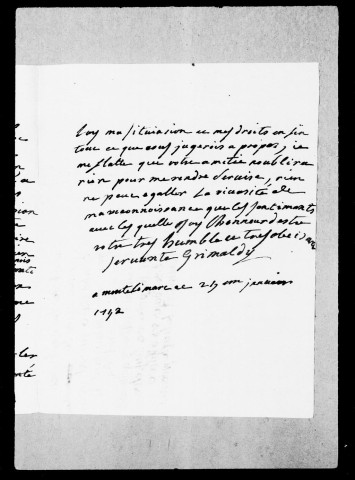 ma situasion ce mes droits enfin
tout ce que vous jugerois a propos, je
me flatte que votre amitié noublira
rien pour me rendre service, rien
ne peut egaller la vivasité de
ma reconnoissance que les sentiments
avec les quelle jay lhonneur destre
votre tres humble ce tres obeisante
servante Grimaldy
a montelimar ce 25 janvier
1792